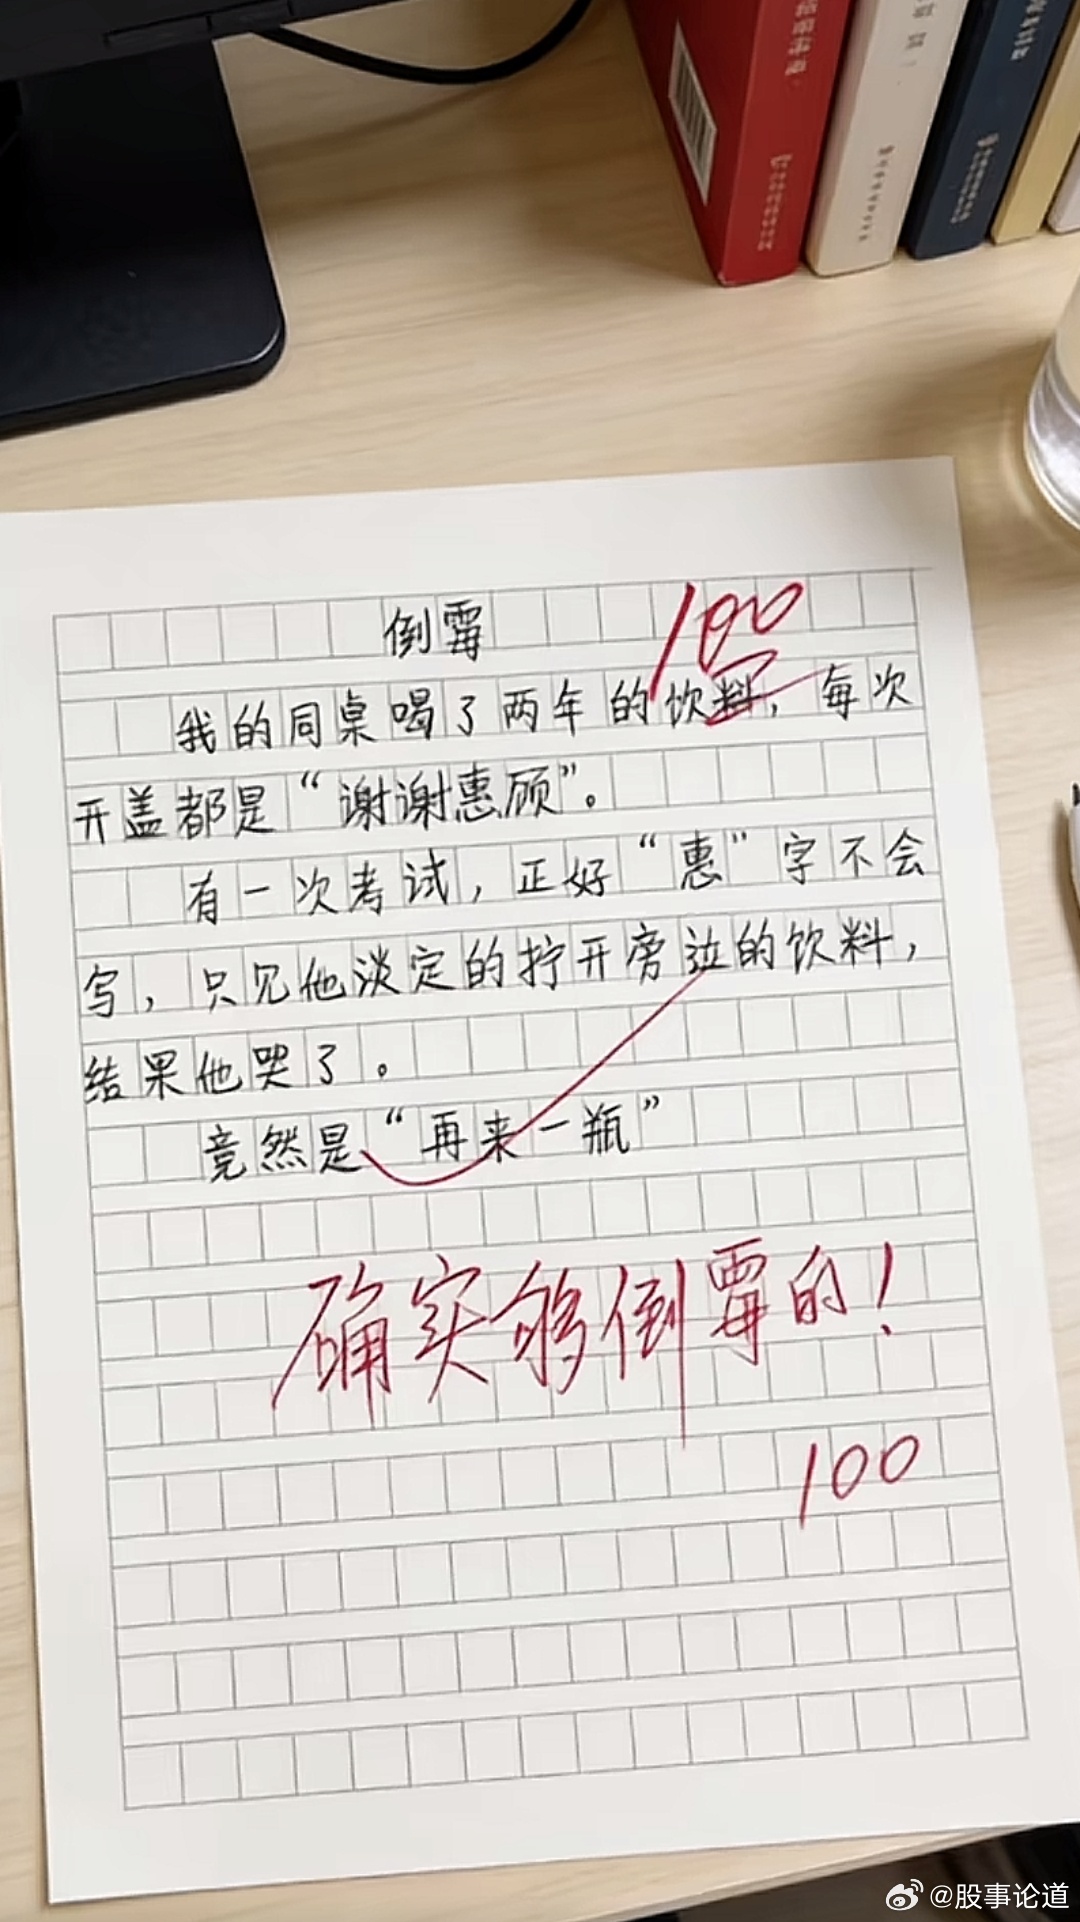 倒霉
100
我的同桌喝了两年的饮料，每次
开盖都是“谢谢惠顾”。
有一次考试，正好“惠”字不会
写，只见他淡定的拧开旁边的饮料，
结果他哭了。
竟然是“再来一瓶”
确实够倒霉的！
100
@股事论道